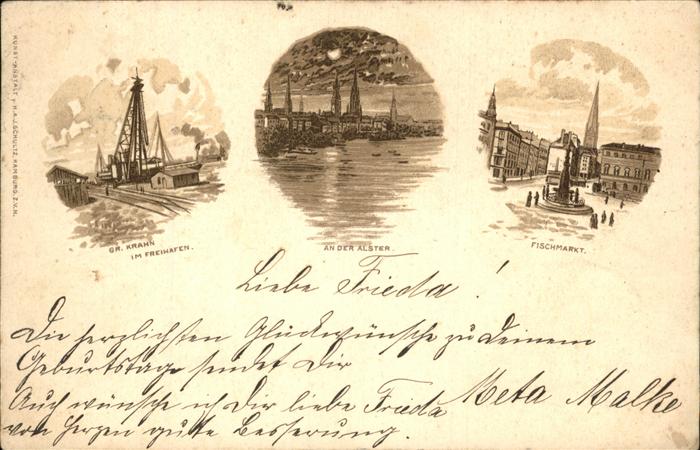 KUNST-ANSTALT v. H.A.J. SCHULTZ, HAMBURG, Z.V.N.
GR. KRAHN
IM FREIHAFEN.
AN DER ALSTER.
FISCHMARKT.
Liebe Frieda!
Die herzlichsten Glückwünsche zu Deinem
Geburtstage sendet Dir
Meta Malke
Auch wünsche ich Dir liebe Frieda
von Herzen gute Besserung.